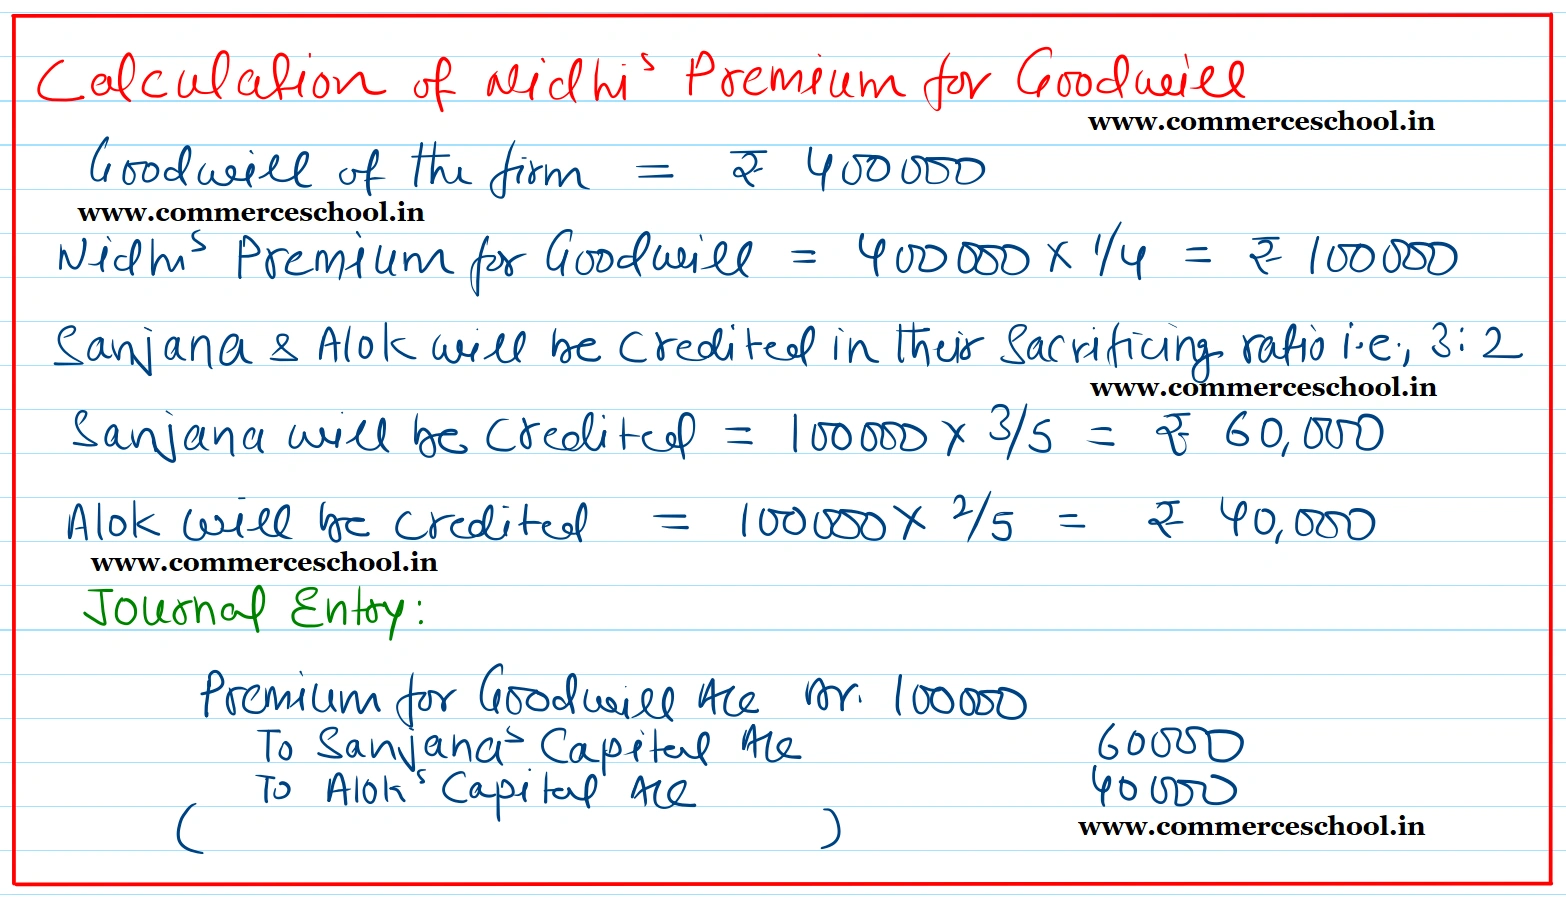 Calculation of Nidhi's Premium for Goodwill
www.commerceschool.in
Goodwill of the firm = ₹ 400000
www.commerceschool.in
Nidhi's Premium for Goodwill = 400000 x 1/4 = ₹ 100000
Sanjana & Alok will be credited in their Sacrificing ratio i.e., 3:2
www.commerceschool.in
Sanjana will be credited = 100000 x 3/5 = ₹ 60,000
Alok will be credited = 100000 x 2/5 = ₹ 40,000
www.commerceschool.in
Journal Entry:
Premium for Goodwill A/c Dr. 100000
To Sanjana's Capital A/c 60000
To Alok's Capital A/c 40000
( )
www.commerceschool.in